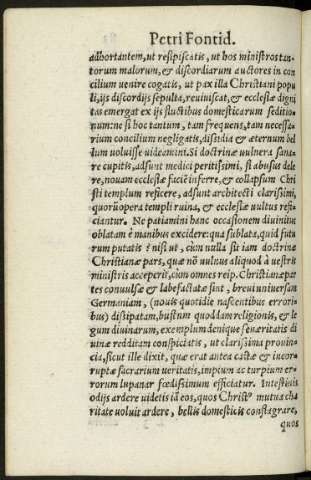 Petri Fontid.
adhortantem, ut resipiscatis, ut hos ministros tan-
torum malorum, & discordiarum auctores in con
cilium uenire cogatis, ut pax illa Christiani popu
li, ijs discordijs sepulta, reuiuiscat, & ecclesiæ digni
tas emergat ex ijs fluctibus domesticarum seditio
num: ne si hoc tantum, tam frequens, tam necessa-
rium concilium negligatis, dissidia & æternum bel
lum uoluisse uideamini. Si doctrinæ uulnera sana-
re cupitis, adsunt medici peritissimi, si abusus dele
re, nouam ecclesiæ faciē inferre, & collapsum Chri
sti templum reficere, adsunt architecti clarissimi,
quorū opera templi ruina, & ecclesiæ uultus refi-
ciantur. Ne patiamini hanc occasionem diuinitus
oblatam è manibus excidere: qua sublata, quid futu
rum putatis? nisi ut, cùm nulla sit iam doctrinæ
Christianæ pars, quæ nō uulnus aliquod à uestris
ministris acceperit, cùm omnes reip. Christianæ par
tes conuulsæ & labefactatæ sint, breui uniuersam
Germaniam, (nouis quotidie nascentibus errori-
bus) dissipatam, bustum quoddam religionis, & le
gum diuinarum, exemplum denique seueritatis di
uinæ redditam conspiciatis, ut clarissima prouin-
cia, sicut ille dixit, quæ erat antea castæ & incor-
ruptæ sacrarium ueritatis, impium ac turpium er-
rorum lupanar fœdissimum efficiatur. Intestinis
odijs ardere uidetis iā eos, quos Christꝰ mutua cha
ritate uoluit ardere, bellis domesticis conflagrare,
quos